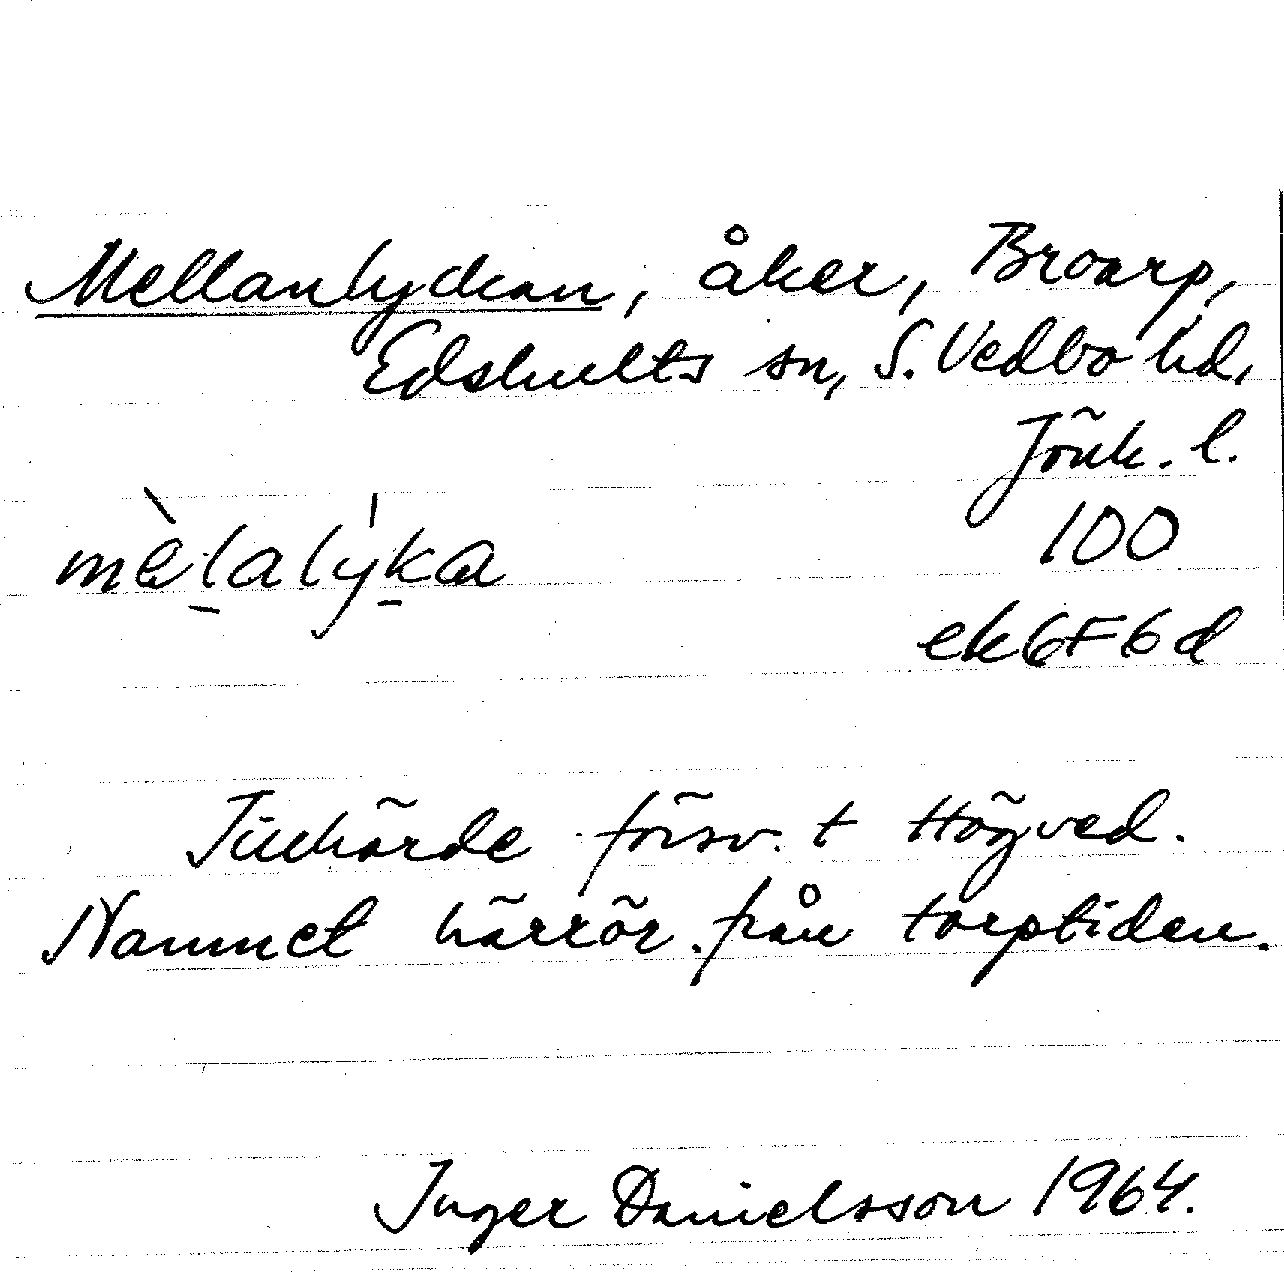 Mellanlyckan, åker, Broarp,
Edshults sn, S. Vedbo hd,
Jönk. l.
mè̀l̠alýk̠a
100
ek6F6d
Tillhörde försv. t Högved.
Namnet härrör från torptiden.
Inger Danielsson 1964.